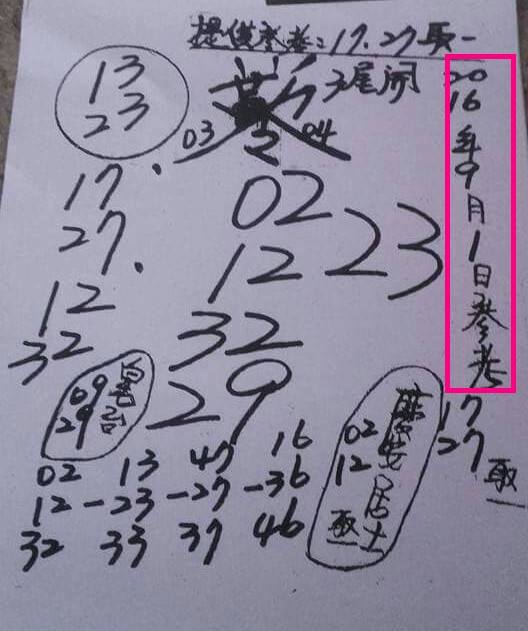 提供参考:17.27取一
13
23
3尾開
03
04
2016年9月1日参考
17.
27.
02
12
32
23
12
32
29
09
29
02
12
居士
取一
17
27
取一
02 13 47 16
12-23-27-36
32 33 37 46